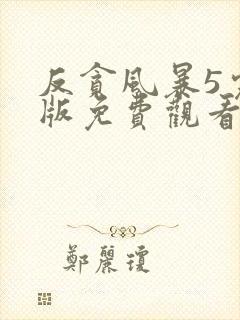 反貪風暴5
版免費觀看
鄭麗瓊